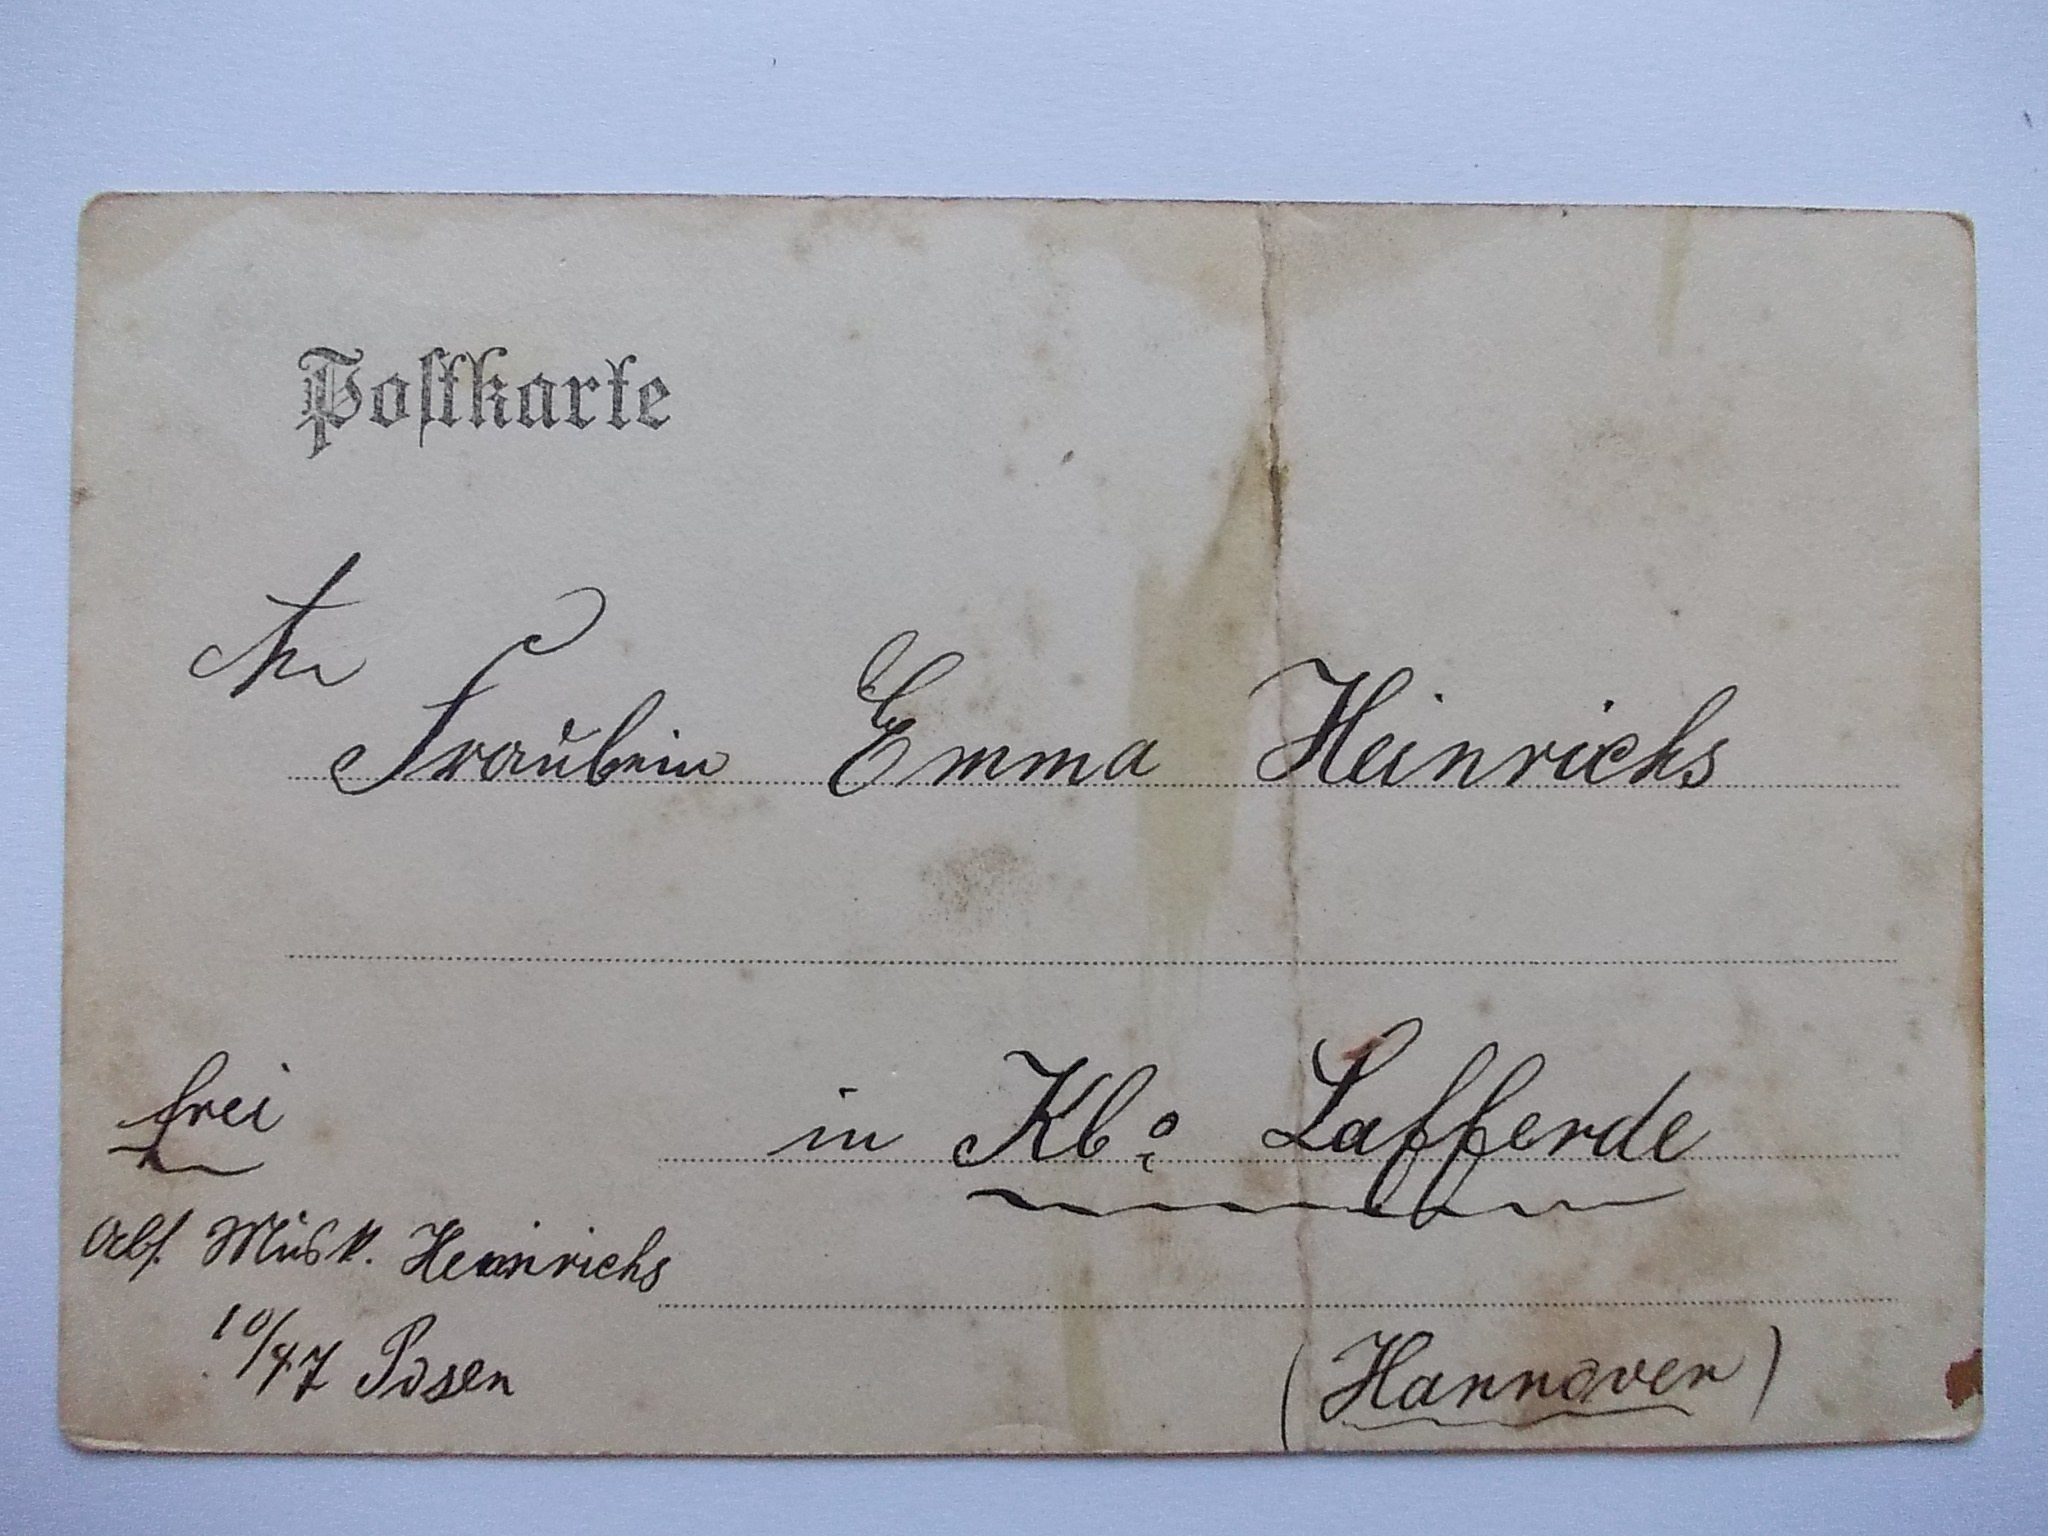 Postkarte
An
Fräulein Emma Heinrichs
in Kl. Lafferde
frei
Abs. Musk. Heinrichs
10/47 Posen
(Hannover)